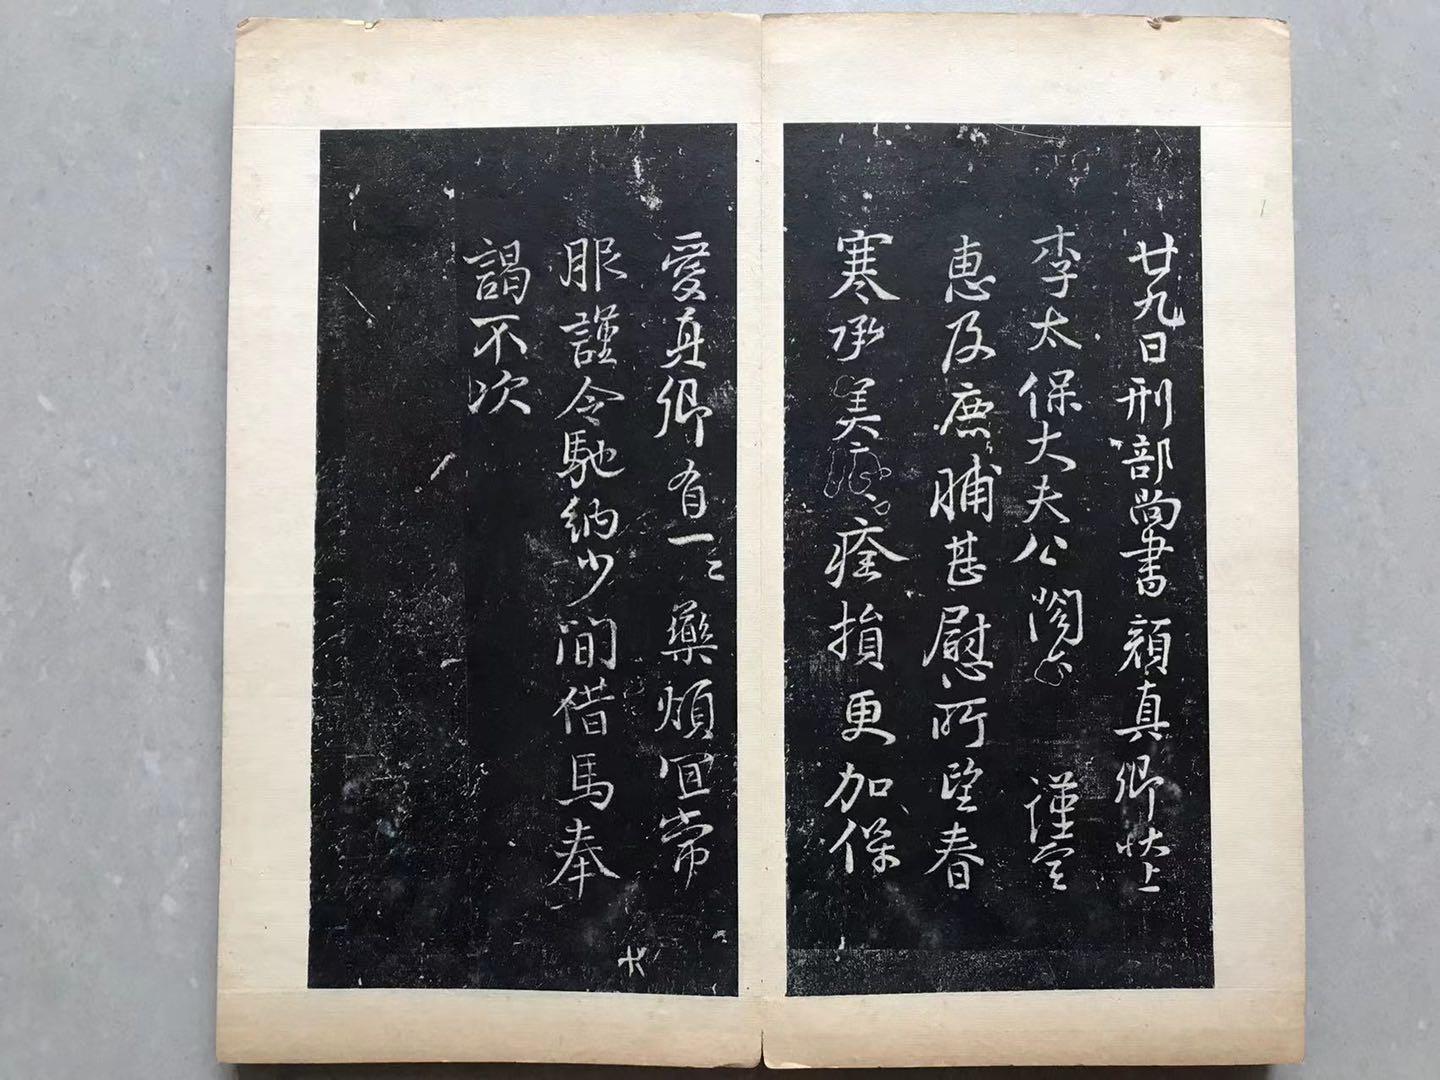 廿九日刑部尚書顔真卿状上
李太保大夫公閤下 謹空
惠及鹿脯甚慰所望春
寒承美疹痊損更加保
愛真卿有一二藥煩宜常
服謹令馳納少間借馬奉
謁不次